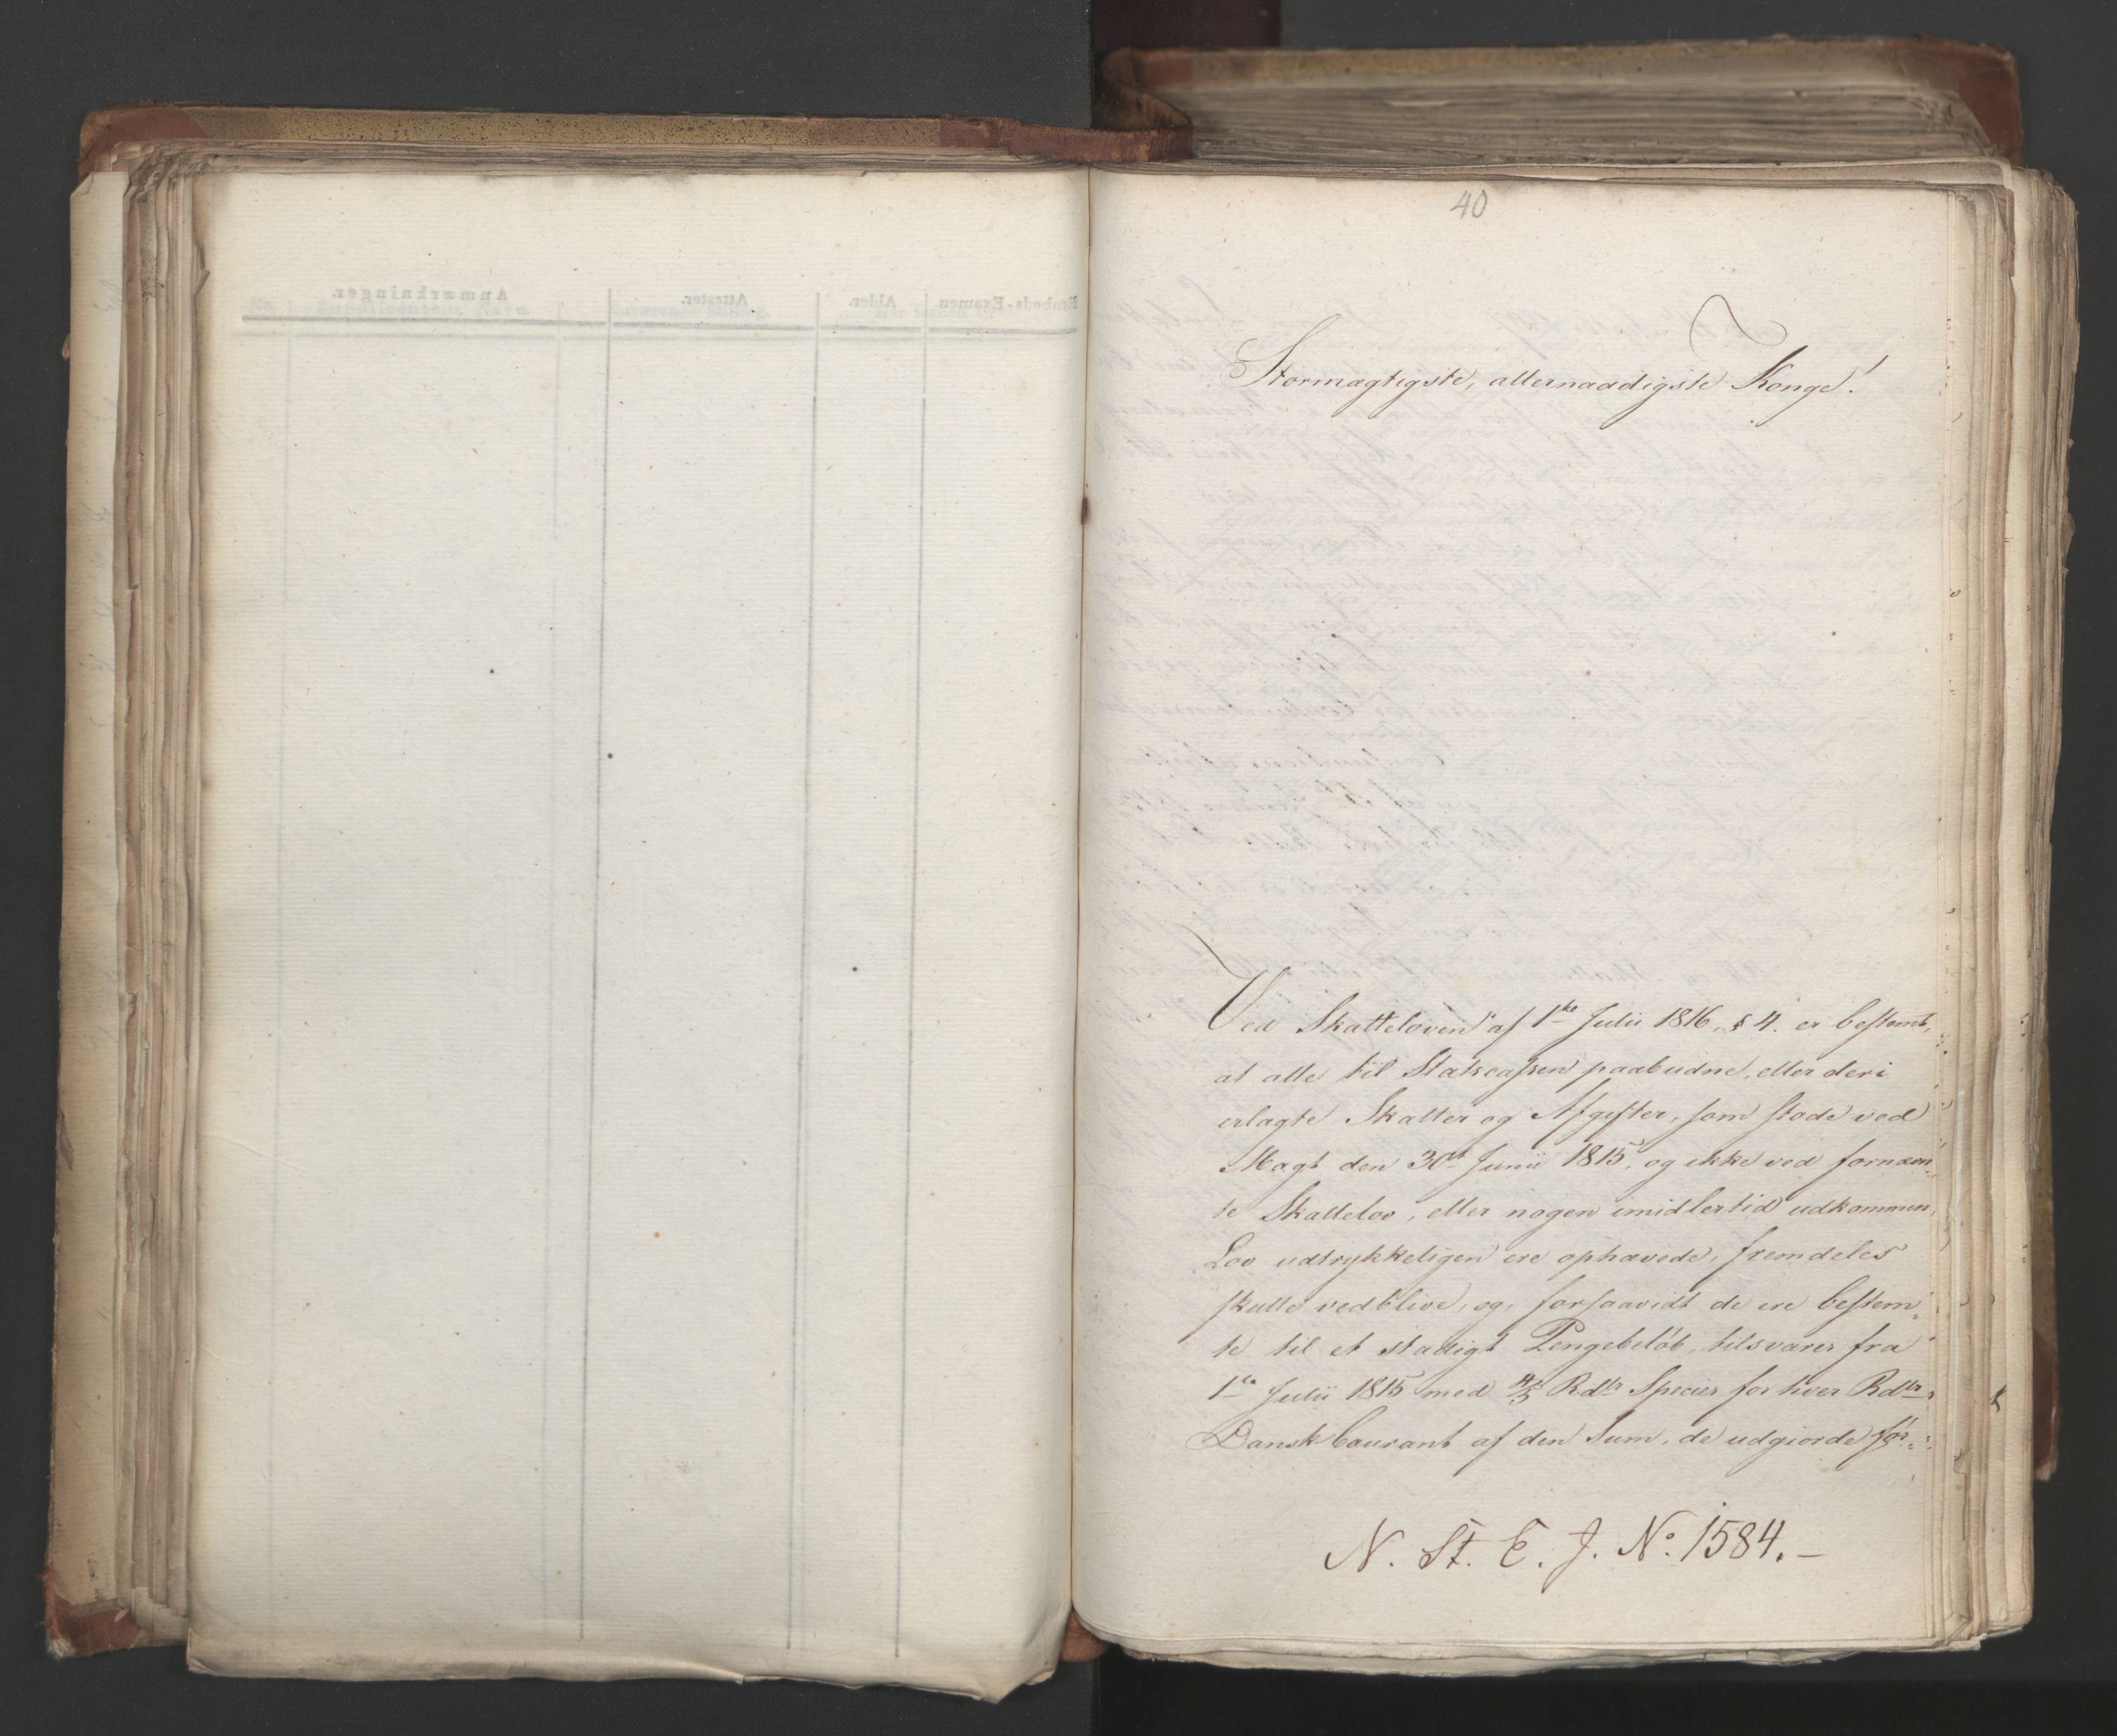 Anmærkninger.
Attester.
Alder.
Embeds-Examen
40
Stormægtigste, allernaadigste Konge!
Ved Skatteloven af 1ste Julii 1816, § 4. er bestemt,
at alle til Statscassen paabudne, eller deri
erlagte Skatter og Afgifter, som stode ved
Magt den 30te Junii 1815, og ikke ved fornævn-
te Skattelov, eller nogen imidlertid udkommen
Lov udtrykkeligen ere ophævede, fremdeles
skulle vedblive, og, forsaavidt de ere bestem-
te til et stadigt Pengebeløb, tilsvares fra
1ste Julii 1815 med 4/5 Rdlr Species for hver Rdlr
Dansk Courant af den Sum, de udgiorde før
N. St. E. J. No. 1584.-